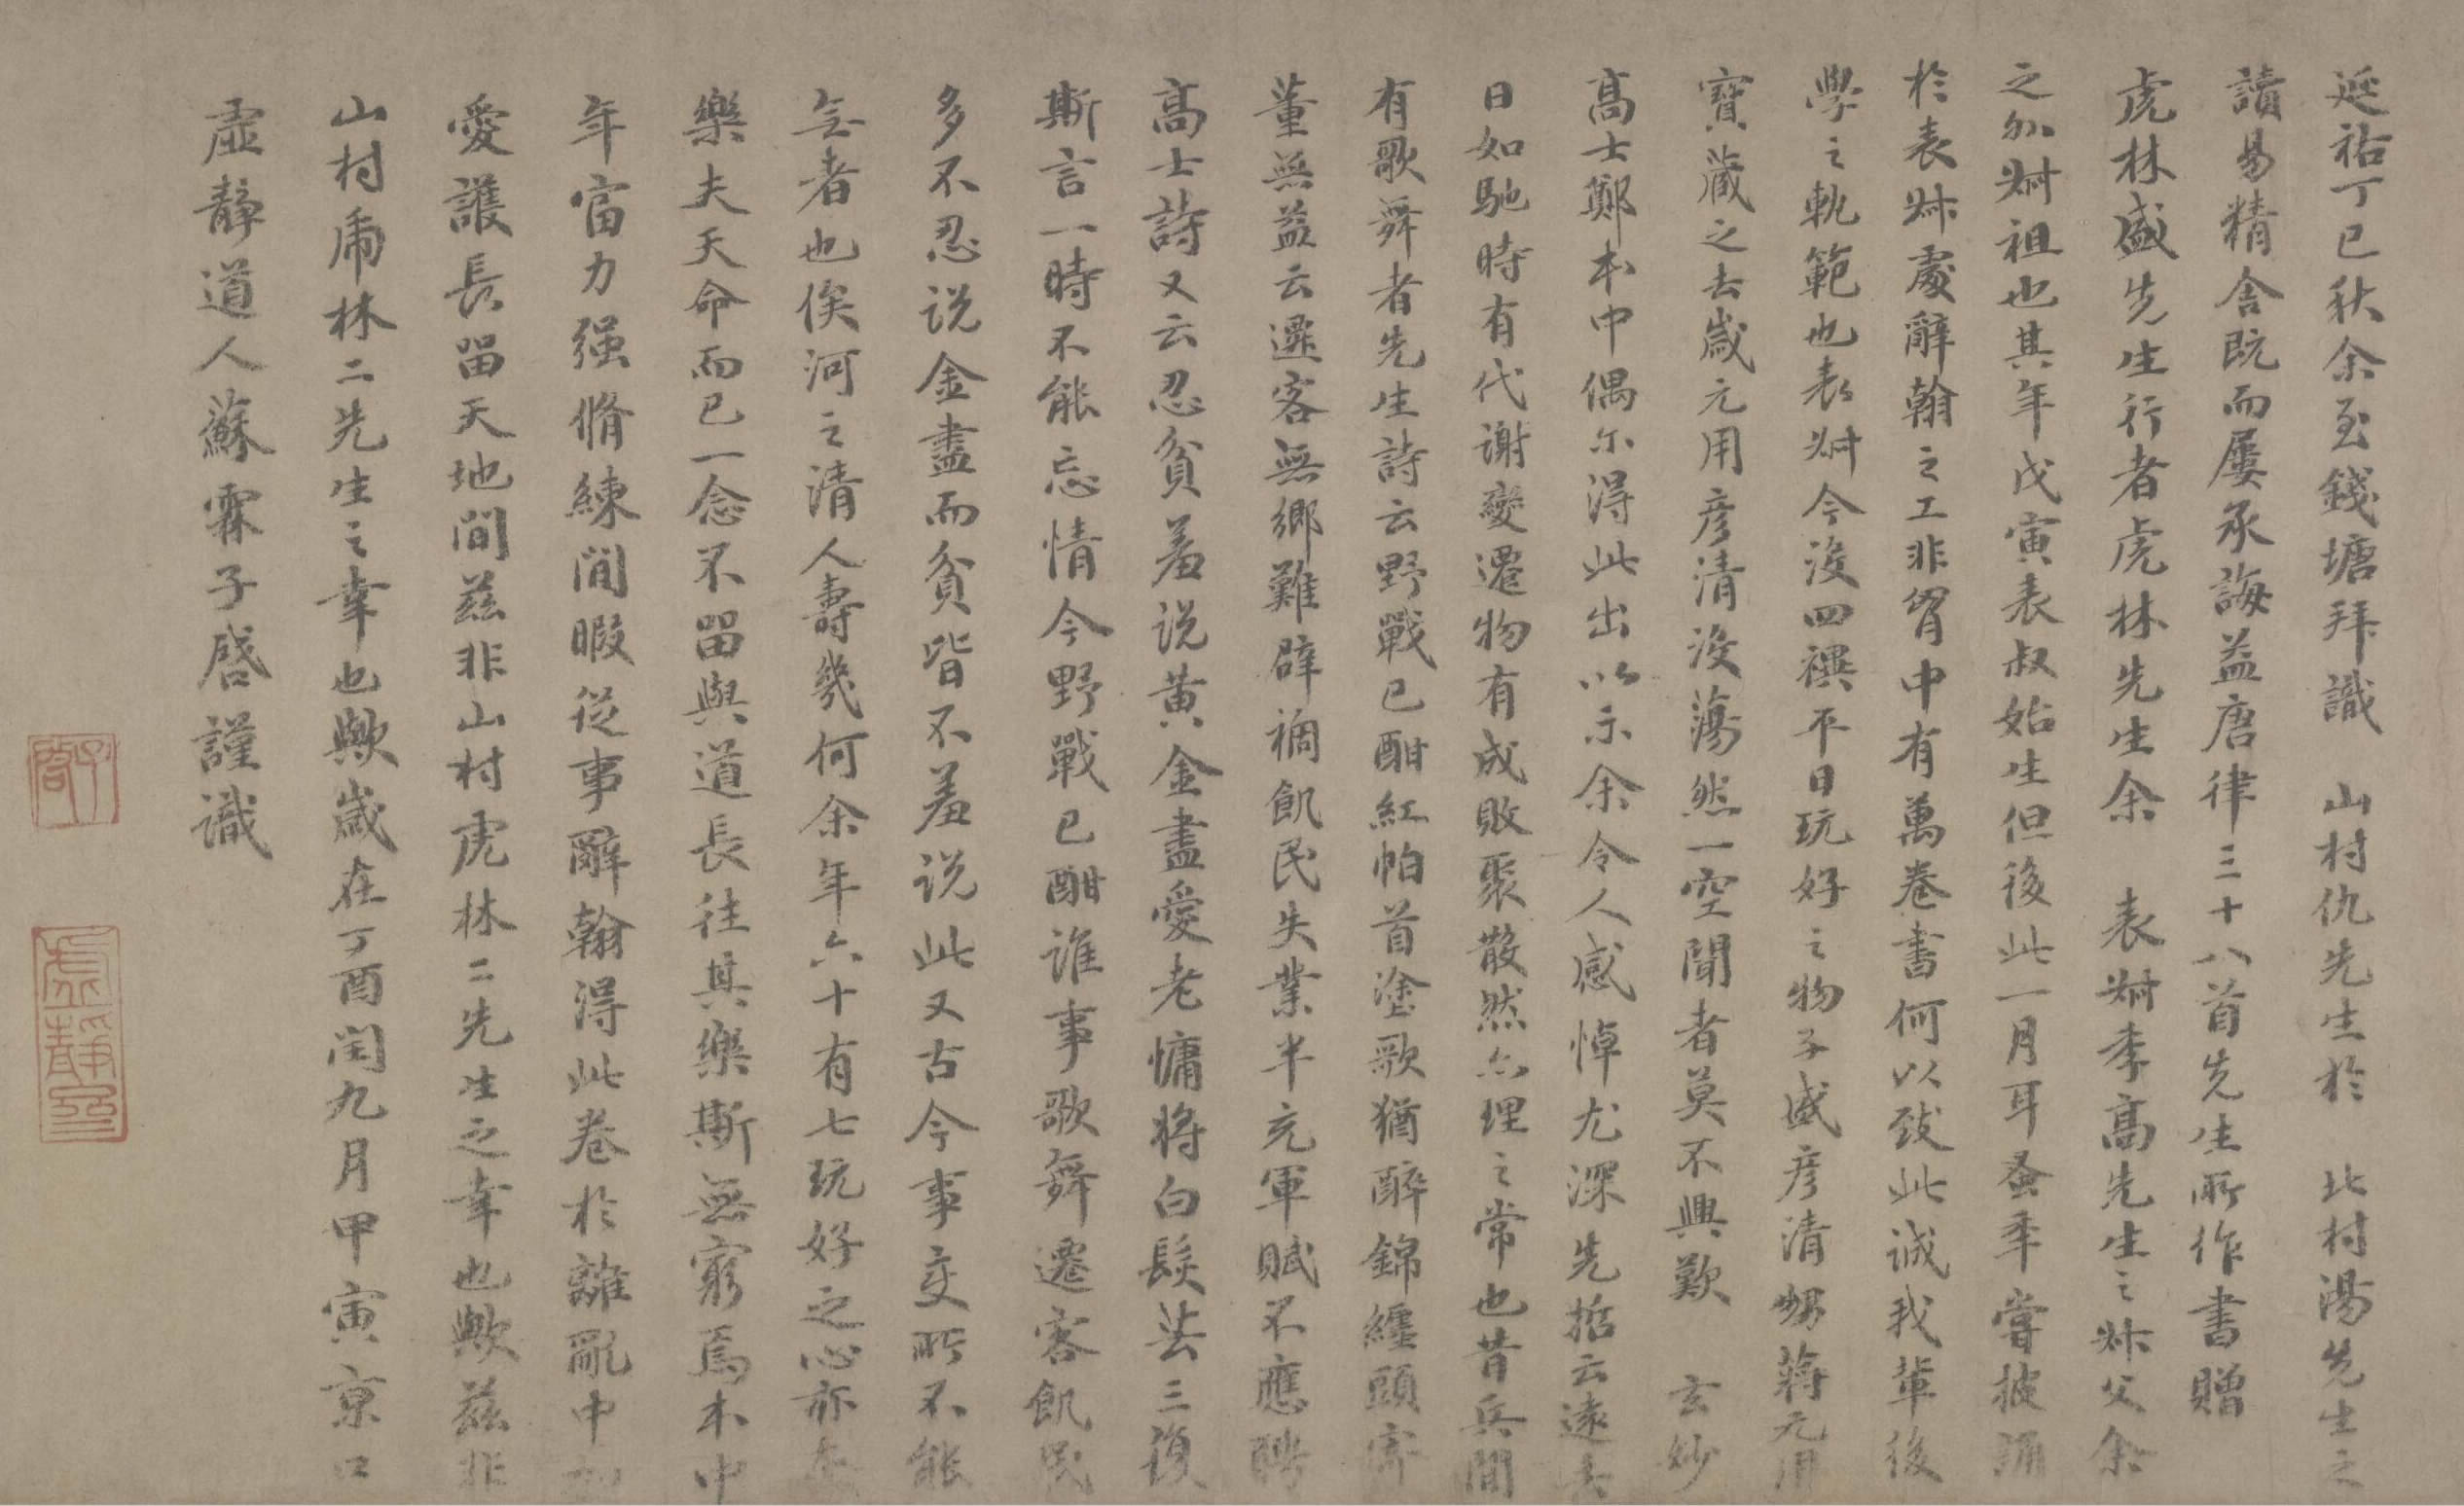 延祐丁巳秋余至錢塘拜識 山村仇先生於 北村湯先生之
讀易精舍既而屢承誨益唐律三十八首先生所作書贈
虎林盛先生行者虎林先生余 表叔季高先生之叔父余
之外叔祖也其年戊寅表叔始生但後此一月耳蚤年嘗披誦
於表叔處辭翰之工非胷中有萬卷書何以致此誠我輩後
學之軌範也表叔今沒四禩平日玩好之物子盛彦清甥蔣元用
寶藏之去歲元用彦清沒蕩然一空聞者莫不興歎 玄妙
高士鄭本中偶尓得此出以示余令人感悼尤深先哲云遠去
日如馳時有代謝變遷物有成敗聚散然亦理之常也昔兵間
有歌舞者先生詩云野戰已酣紅帕首塗歌猶醉錦纏頭寄
董無益云遷客無鄉難辟禍飢民失業半充軍賦不應聘
高士詩又云忍貧羞说黄金盡愛老慵將白髮芸三復
斯言一時不能忘情今野戰已酣誰事歌舞遷客飢民
多不忍说金盡而貧皆不羞说此又古今事变所不能
无者也俟河之清人壽幾何余年六十有七玩好之心亦
樂夫天命而已一念不留與道長往其樂斯無窮焉本中
年富力强脩練閒暇從事辭翰得此卷於離亂中
愛護長留天地間兹非山村虎林二先生之幸也歟兹非
山村虎林二先生之幸也歟歲在丁酉閏九月甲寅京口
虛靜道人蘇霖子啓謹識
子啓
虛靜